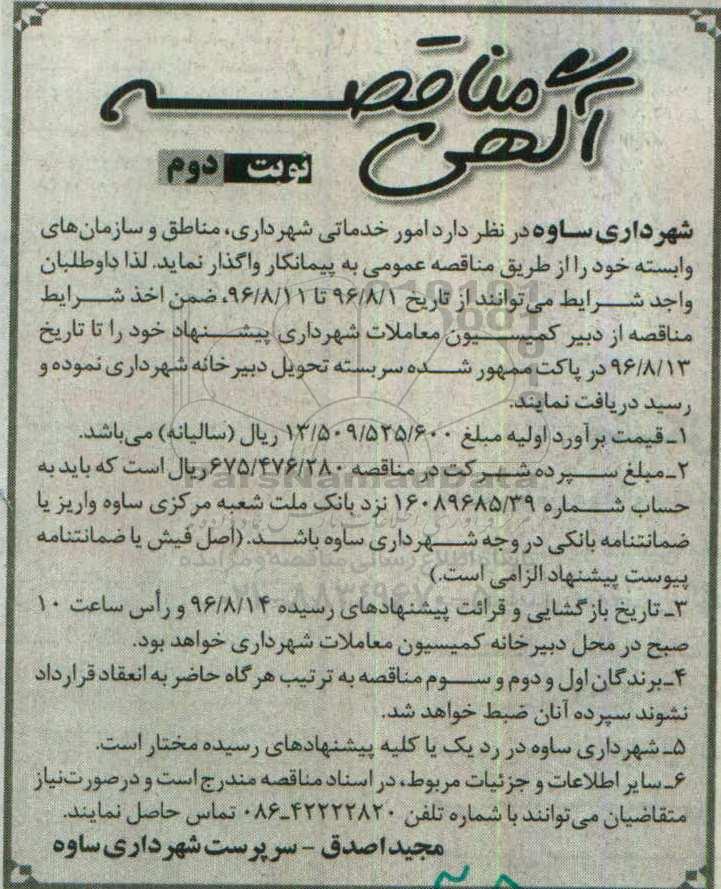 آگهی مناقصه
نوبت دوم
شهرداری ساوه در نظر دارد امور خدماتی شهرداری، مناطق و سازمان‌های
وابسته خود را از طریق مناقصه عمومی به پیمانکار واگذار نماید. لذا داوطلبان
واجد شرایط می‌توانند از تاریخ ۹۶/۸/۱ تا ۹۶/۸/۱۱، ضمن اخذ شرایط
مناقصه از دبیر کمیسیون معاملات شهرداری پیشنهاد خود را تا تاریخ
۹۶/۸/۱۳ در پاکت ممهور شده سربسته تحویل دبیرخانه شهرداری نموده و
رسید دریافت نمایند.
۱ـ قیمت برآورد اولیه مبلغ ۱۳/۵۰۹/۵۲۵/۶۰۰ ریال (سالیانه) می‌باشد.
۲ـ مبلغ سپرده شرکت در مناقصه ۶۷۵/۴۷۶/۲۸۰ ریال است که باید به
حساب شماره ۱۶۰۸۹۶۸۵/۳۹ نزد بانک ملت شعبه مرکزی ساوه واریز یا
ضمانتنامه بانکی در وجه شهرداری ساوه باشد. (اصل فیش یا ضمانتنامه
پیوست پیشنهاد الزامی است.)
۳ـ تاریخ بازگشایی و قرائت پیشنهادهای رسیده ۹۶/۸/۱۴ و رأس ساعت ۱۰
صبح در محل دبیرخانه کمیسیون معاملات شهرداری خواهد بود.
۴ـ برندگان اول و دوم و سوم مناقصه به ترتیب هرگاه حاضر به انعقاد قرارداد
نشوند سپرده آنان ضبط خواهد شد.
۵ـ شهرداری ساوه در رد یک یا کلیه پیشنهادهای رسیده مختار است.
۶ـ سایر اطلاعات و جزئیات مربوط، در اسناد مناقصه مندرج است و در صورت نیاز
متقاضیان می‌توانند با شماره تلفن ۴۲۲۲۲۸۲۰ـ۰۸۶ تماس حاصل نمایند.
مجید اصدق - سرپرست شهرداری ساوه
ParsNamadData